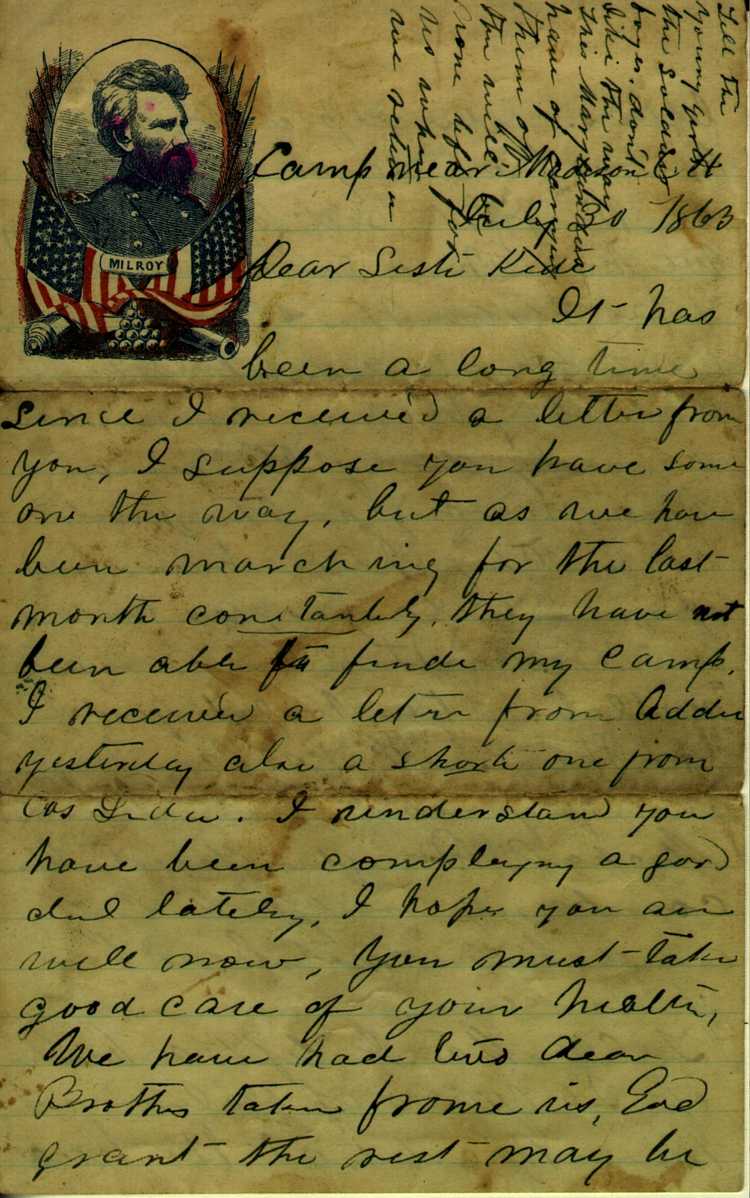 Tell the
young girls
the Soldier
boys. don't
like the way
this Marying
have of
them
the will
none left for
us when
we return
MILROY
Camp near Madison C H
July 30 1863
Dear Siste Kide
It has
been a long time
since I receieved a letter from
you, I suppose you have some
one the way, but as we have
been marching for the last
month constantely, they have not
been able to finde my camp.
I receieved a letter from Addie
yesterday also a short one from
Cos Lidie. I understand you
have been complayng a good
deal lately, I hope you are
well now, You must take
good care of your health,
We have had two dear
Brothers taken frome us, God
grant the rest may be